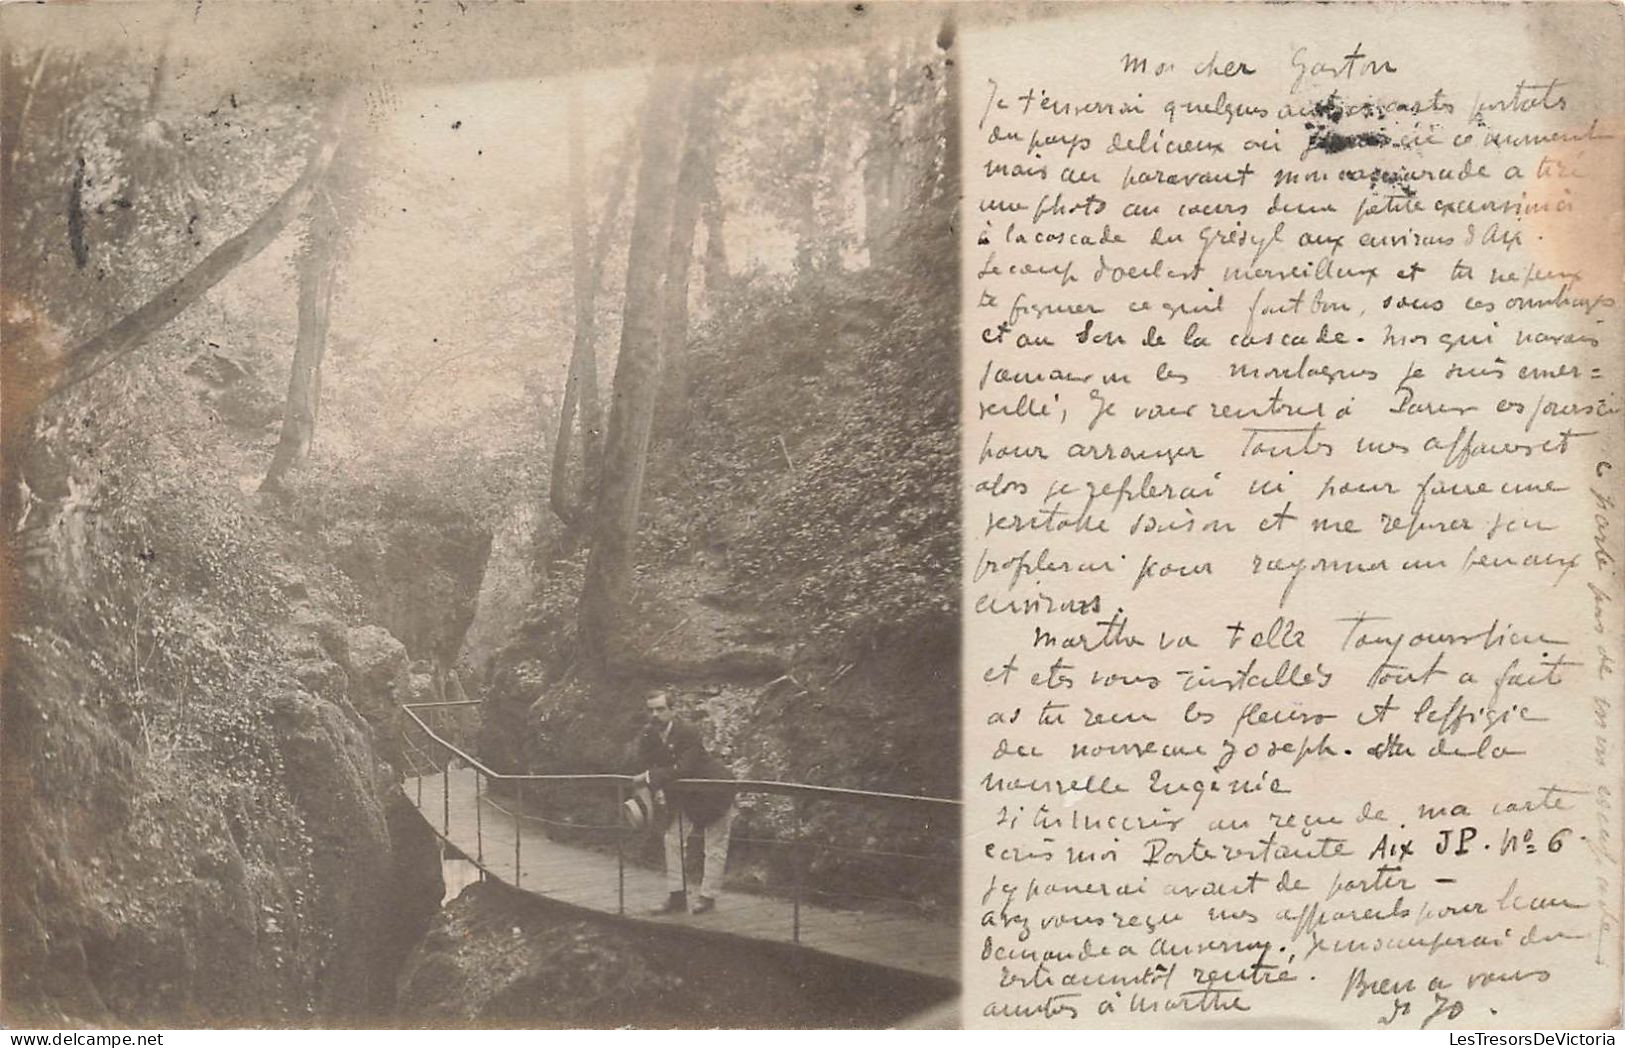 Mon cher Gaston
Je t'enverrai quelques autres cartes postales
du pays délicieux où ce moment
mais au paravant mon camarade a tiré
une photo au cours dune petite excursion
à la cascade du Grésyl aux environs d'Aix.
Le coup d'oeil est merveilleux et tu ne peux
te figurer ce quil fait bon, sous ces ombrages
et au son de la cascade. Moi qui navais
jamais vu les montagnes je suis émer=
veillé, Je vais rentrer à Paris ces jours ci
pour arranger toutes mes affaires et
alors je ici pour faire une
véritable saison et me reposer j'en
profiterai pour rayonner un peu aux
environs.
Marthe va t elle toujours bien
et etes vous installés tout a fait
as tu reçu les fleurs et l'effigie
du nouveau Joseph. et de la
nouvelle Eugénie
si tu m'écris au reçu de ma carte
écris moi Poste restante Aix JP. No 6
j'y passerai avant de partir -
avez vous reçu mes appareils pour l'eau
demandé a Auvernay. Je m'occuperai du
reste aussitôt rentré.
amitiés à Marthe
Bien a vous
Jo.
parle pas de mon
LesTresorsDeVictoria